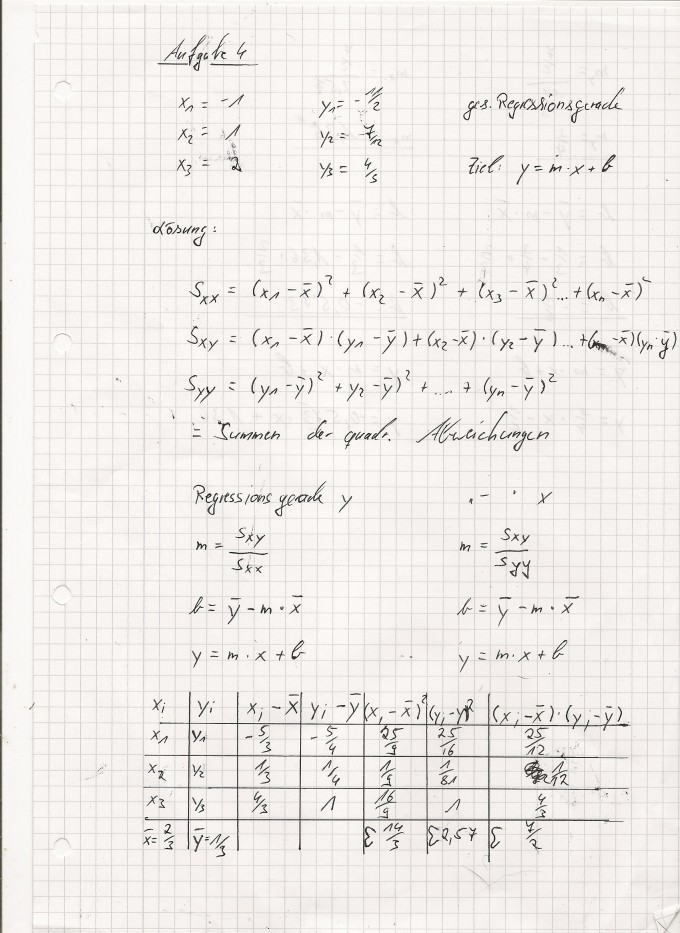 Aufgabe 4
x₁ = -1 y₁ = -11/2 ges. Regressionsgerade
x₂ = 1 y₂ = 7/12
x₃ = 2 y₃ = 4/3 Ziel: y = m·x + b
Lösung:
Sxx = (x₁ - x̄)² + (x₂ - x̄)² + (x₃ - x̄)² ... + (xn - x̄)²
Sxy = (x₁ - x̄)·(y₁ - ȳ) + (x₂ - x̄)·(y₂ - ȳ) ... + (xn - x̄)(yn - ȳ)
Syy = (y₁ - ȳ)² + y₂ - ȳ)² + .... + (yn - ȳ)²
= Summen der quadr. Abweichungen
Regressionsgerade y " - " x
m = Sxy/Sxx m = Sxy/Syy
b = ȳ - m·x̄ b = ȳ - m·x̄
y = m·x + b y = m·x + b
xi yi xi - x̄ yi - ȳ (xi - x̄)² (yi - y)² (xi - x̄)·(yi - ȳ)
x₁ y₁ -5/3 -5/4 25/9 25/16 25/12
x₂ y₂ 1/3 1/4 1/9 1/81 1/12
x₃ y₃ 4/3 1 16/9 1 4/3
x̄ = 2/3 ȳ = 1/3 Σ 14/3 Σ 2,57 Σ 7/2